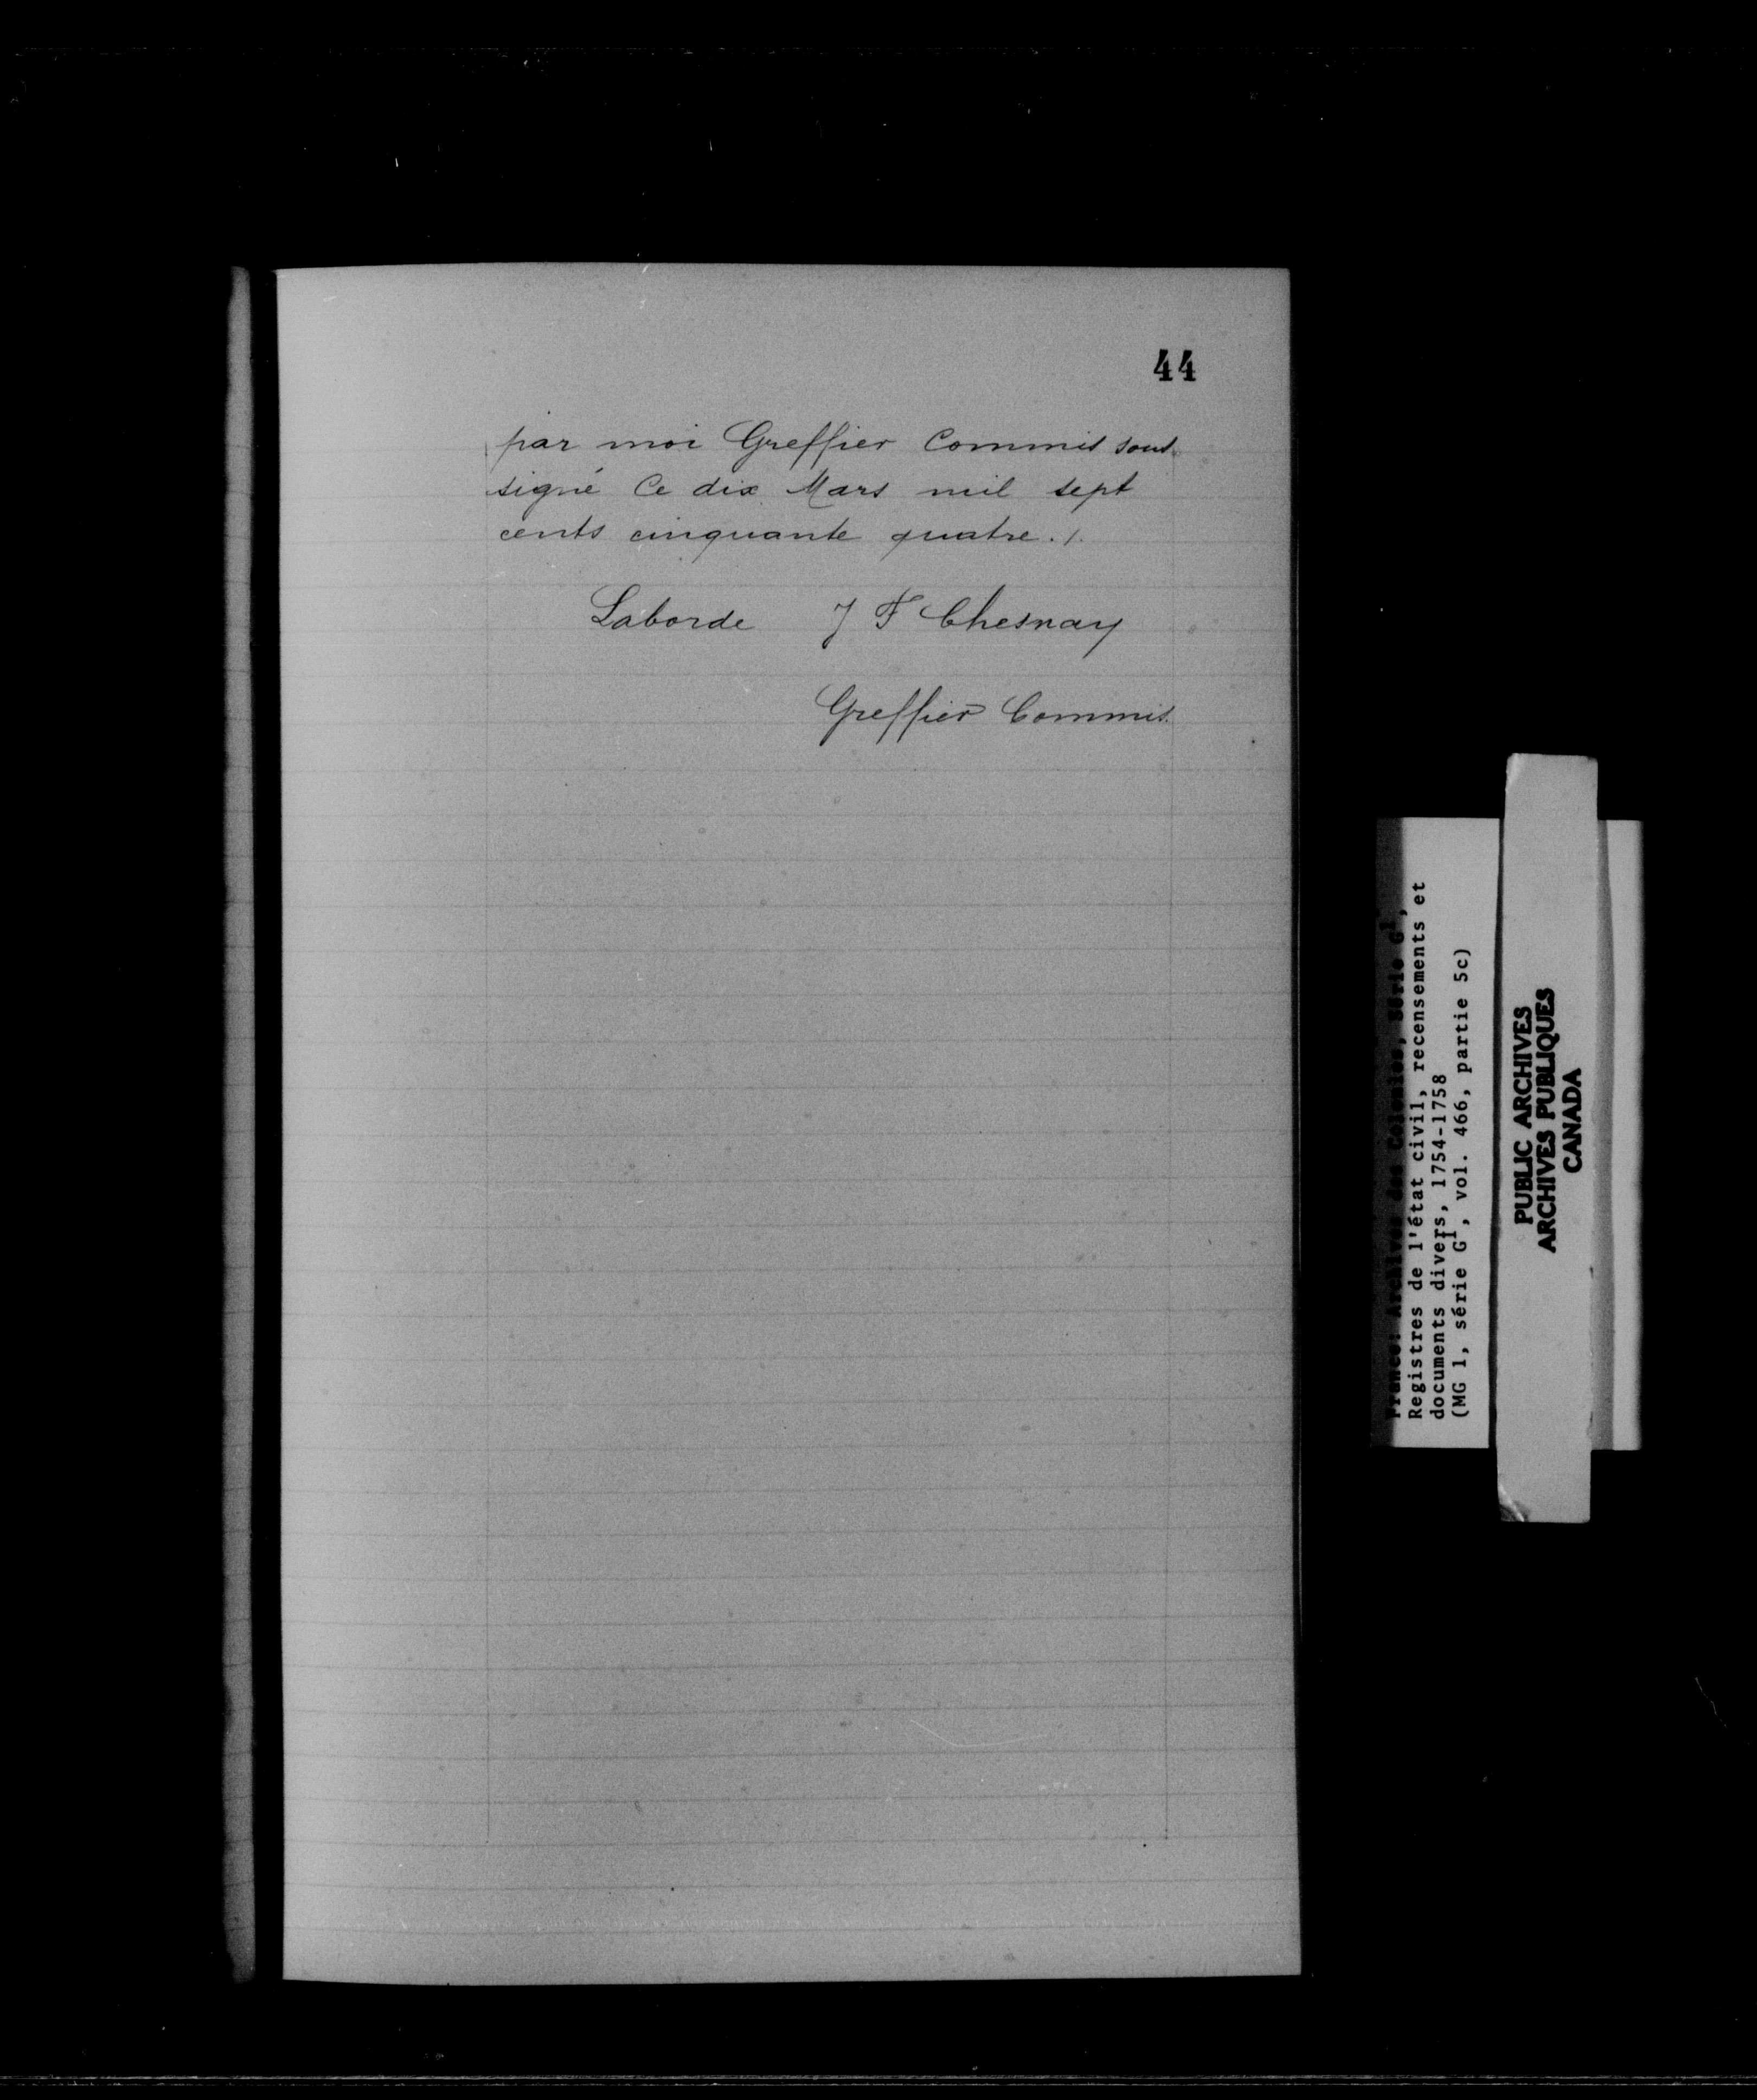 44
par moi Greffier Commis sous
signé Ce dix Mars mil sept
cents cinquante quatre ./.
Laborde J F Chesnay
Greffier Commis
France: Archives des Colonies, Série G1,
Registres de l'état civil, recensements et
documents divers, 1754-1758
(MG 1, série G1, vol. 466, partie 5c)
PUBLIC ARCHIVES
ARCHIVES PUBLIQUES
CANADA